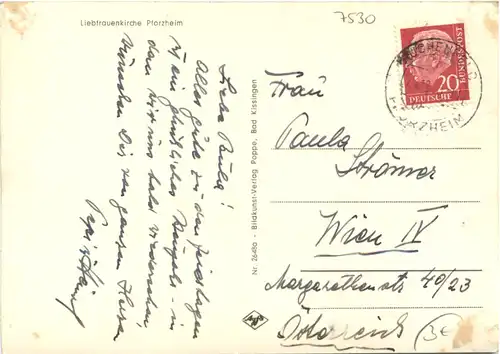 Liebfrauenkirche Pforzheim
7530
Liebe Paula!
Alles Gute zu den Feiertagen
ein glückliches Neujahr
dass wir uns bald wiedersehen,
wünschen Dir von ganzem Herzen
Nr. 2648a - Bildkunst-Verlag Poppe, Bad Kissingen
DEUTSCHE BUNDESPOST
20
PFORZHEIM
Frau
Paula
Strömer
Wien IV
Margarethenstr 40/23
Österreich
3€